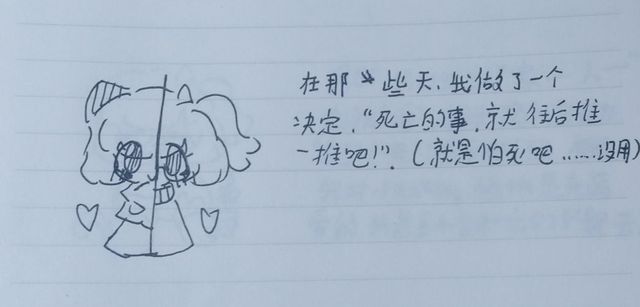 在那些天，我做了一个
决定，“死亡的事，就往后推
一推吧！”。（就是怕死吧……没用）